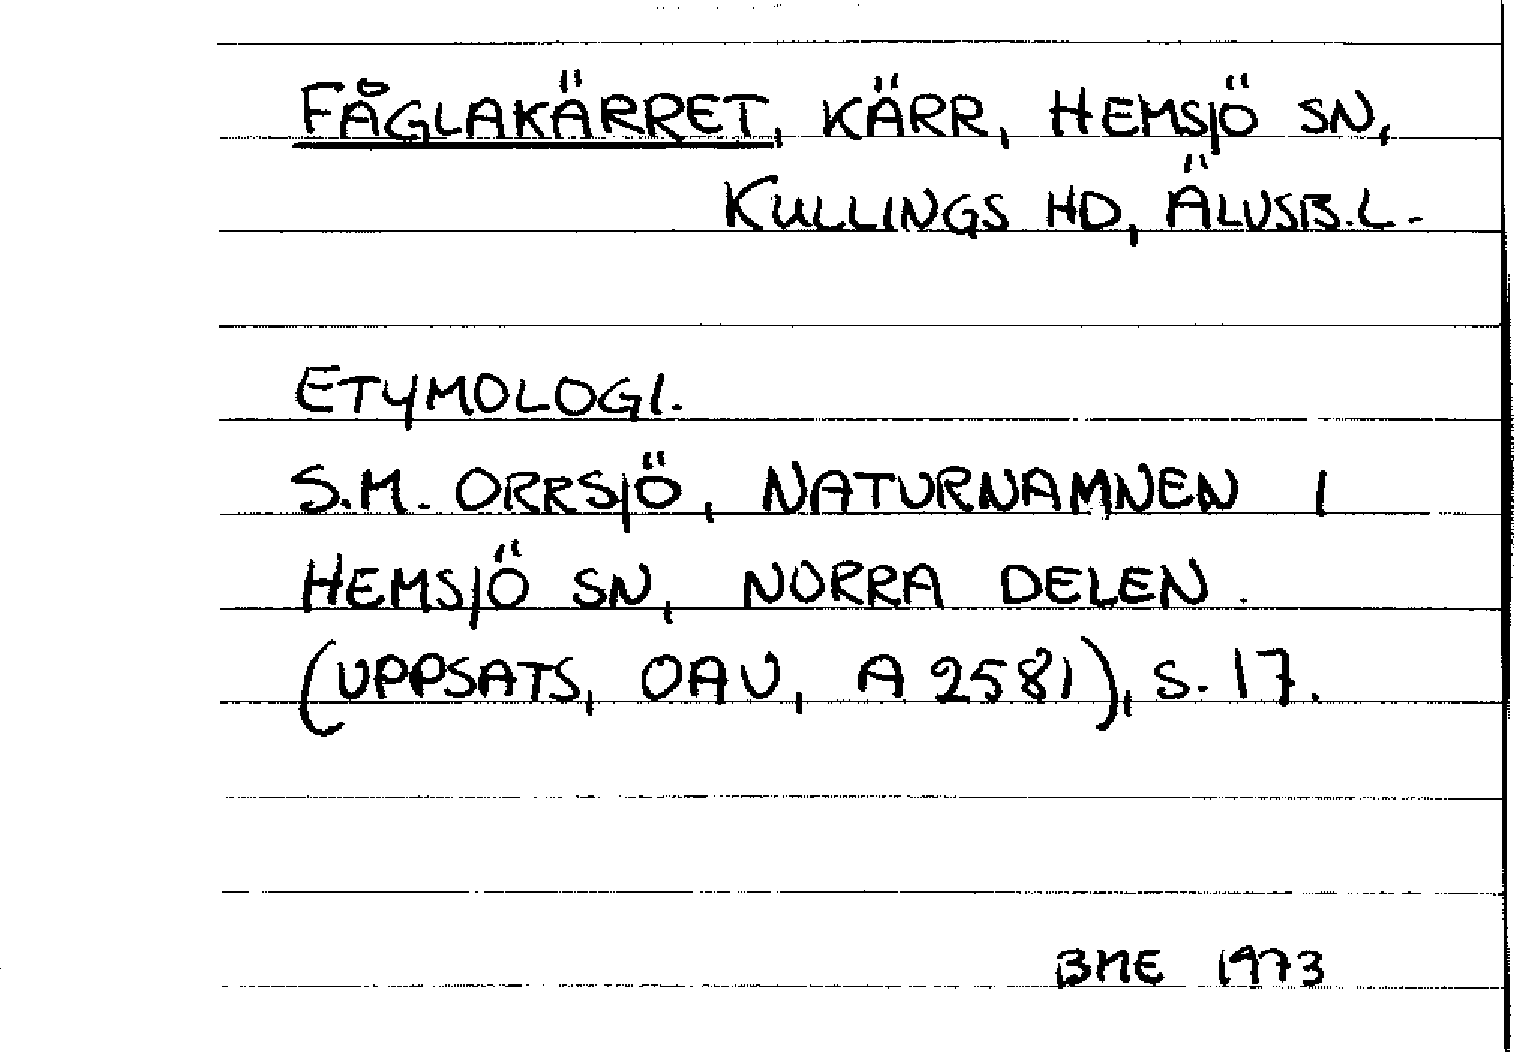 FÅGLAKÄRRET, KÄRR, HEMSJÖ SN,
KULLINGS HD, ÄLVSB.L.
ETYMOLOGI.
S.M. ORRSJÖ, NATURNAMNEN I
HEMSJÖ SN, NORRA DELEN.
(UPPSATS, OAU, A 2581), S. 17.
BME 1973